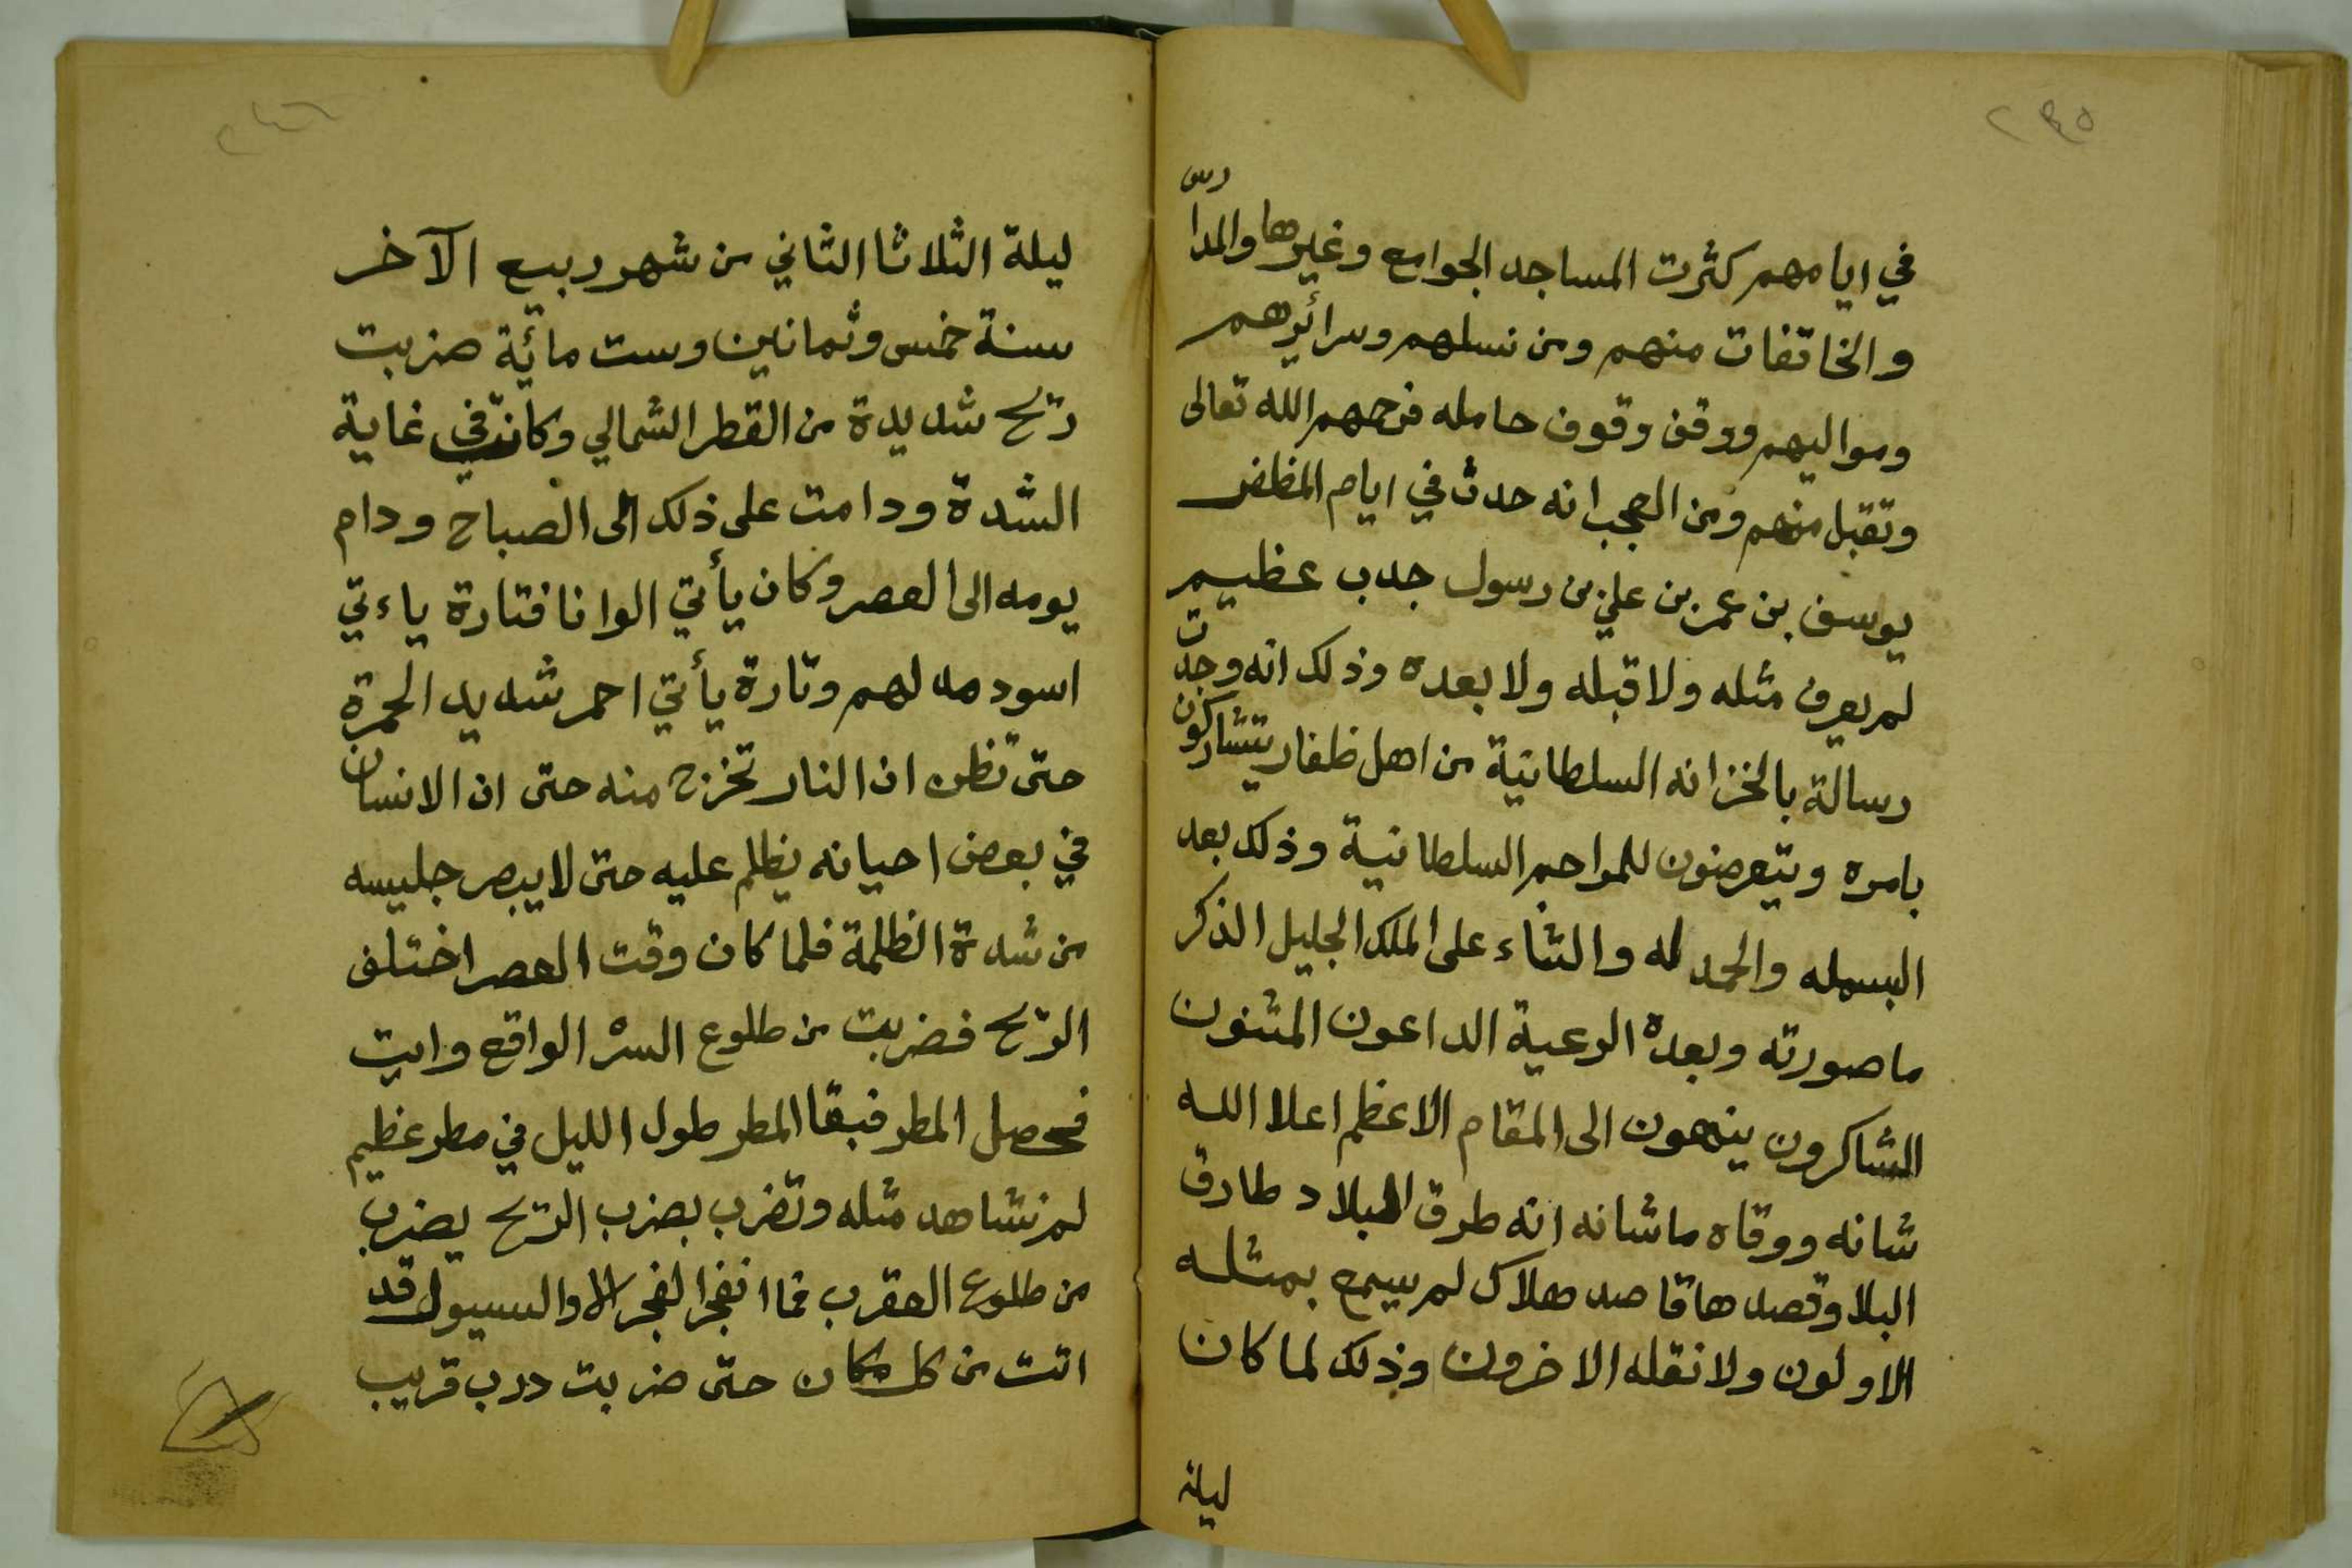 ٢٤٥
في ايامهم كثرت المساجد الجوامع وغيرها والمدا
رس
والخانقات منهم ومن نسلهم وسرائرهم
ومواليهم ووقف وقوف حامله فرحمهم الله تعالى
وتقبل منهم ومن العجب انه حدث في ايام المظفر
يوسف بن عمر بن علي بن رسول جدب عظيم
لم يعرف مثله ولا قبله ولا بعده وذلك انه وجدت
رسالة بالخزانه السلطانية من اهل ظفار يتشاركون
بامره ويتعرضون للمراحم السلطانية وذلك بعد
البسمله والحمد لله والثناء على الملك الجليل الذكر
ما صورته وبعده الرعية الداعون المثنون
الشاكرون ينهون الى المقام الاعظم اعلا الله
شانه ووقاه ما شانه انه طرق البلاد طارق
البلا وقصدها قاصد هلاك لم يسمع بمثله
الاولون ولا نقله الاخرون وذلك لما كان
ليلة
٢٤٦
ليلة الثلاثا الثاني من شهر ربيع الآخر
سنة خمس وثمانين وست مائة ضربت
ريح شديدة من القطر الشمالي وكانت في غاية
الشدة ودامت على ذلك الى الصباح ودام
يومه الى العصر وكان يأتي الوانا فتارة ياءتي
اسود مدلهم وتارة يأتي احمر شديد الحمرة
حتى تظن ان النار تخرج منه حتى ان الانسان
في بعض احيانه يظلم عليه حتى لا يبصر جليسه
من شدة الظلمة فلما كان وقت العصر اختلف
الريح فضربت من طلوع السر الواقع وايت
فحصل المطر فبقا المطر طول الليل في مطر عظيم
لم نشاهد مثله وتضرب بضرب الريح يضرب
من طلوع العقرب فما انفجر الفجر الا والسيول قد
اتت من كل مكان حتى ضربت درب قريب